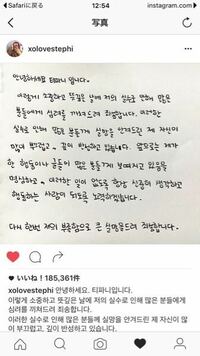 Safariに戻る 12:54 instagram.com
写真
xolovestephi
안녕하세요 티파니 입니다.
이렇게 소중하고 뜻깊은 날에 저의 실수로 인해 많은
분들에게 심려를 끼쳐드려 죄송합니다. 이러한
실수로 인해 많은 분들께 실망을 안겨드린 제 자신이
많이 부끄럽고, 깊이 반성하고 있습니다. 앞으로는 제가
한 행동이나 글들이 많은 분들께 보여지고 있음을
명심하고, 이러한 일이 없도록 항상 신중히 생각하고
행동하는 사람이 되도록 노력하겠습니다.
다시 한번 저의 부족함으로 큰 실망끼쳐드려 죄송합니다.
いいね！185,361件
xolovestephi 안녕하세요. 티파니입니다.
이렇게 소중하고 뜻깊은 날에 저의 실수로 인해 많은 분들에게
심려를 끼쳐드려 죄송합니다.
이러한 실수로 인해 많은 분들께 실망을 안겨드린 제 자신이 많
이 부끄럽고, 깊이 반성하고 있습니다.